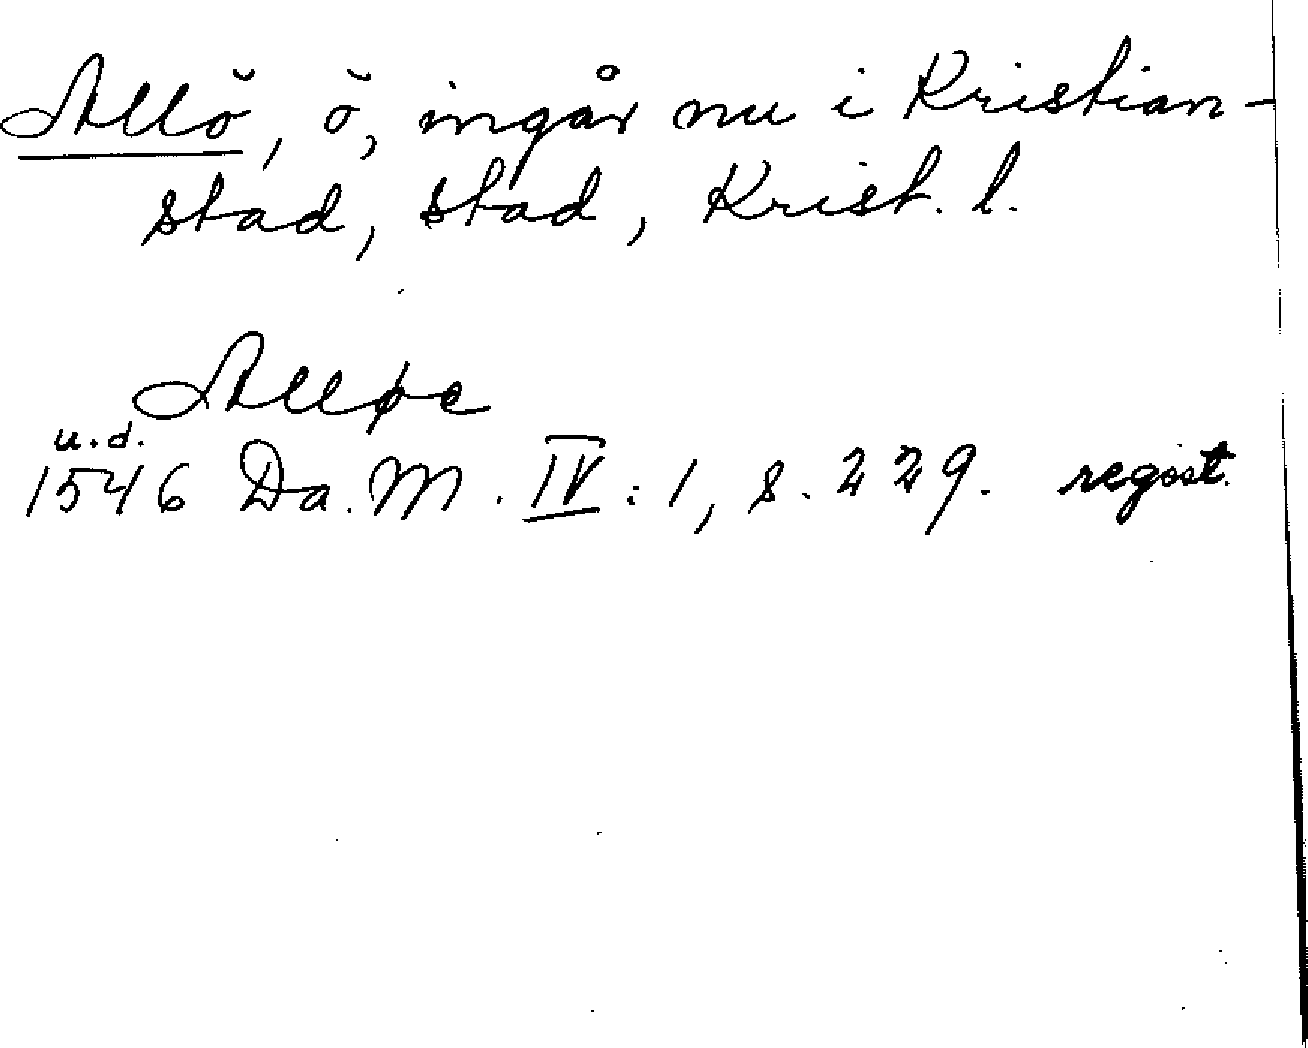 Allö, ö, ingår nu i Kristian-
stad, stad, Krist. l.
Alløe
u.d.
1546 Da. M. IV : 1, s. 229. regist.